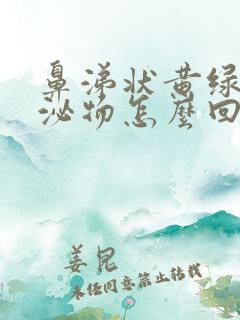 鼻涕状黄绿
泌物怎麽回
姜昆
未经同意禁止转载